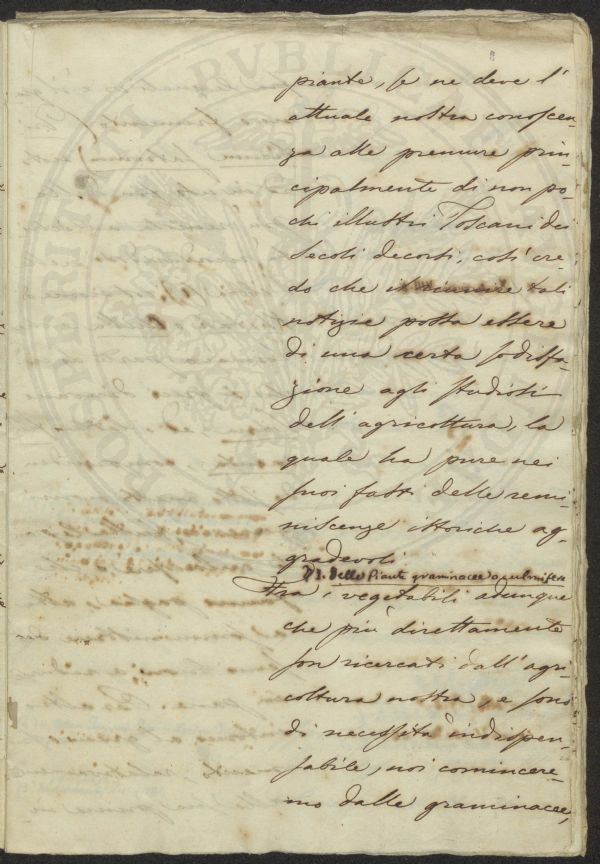 piante, se ne deve l'
attuale nostra conoscen-
za alle premure prin-
cipalmente di non po-
chi illustri Toscani dei
secoli decorsi, così cre-
do che il riunire tali
notizie possa essere
di una certa sodisfa-
zione agli studiosi
dell'agricoltura, la
quale ha pure nei
suoi fasti delle remi-
niscenze istoriche ag-
gradevoli.
Delle Piante graminacee o culmifere
Tra i vegetabili adunque
che più direttamente
son ricercati dall'agri-
coltura nostra, e sono
di necessità indispen-
sabile, noi comincere-
mo dalle graminacee,